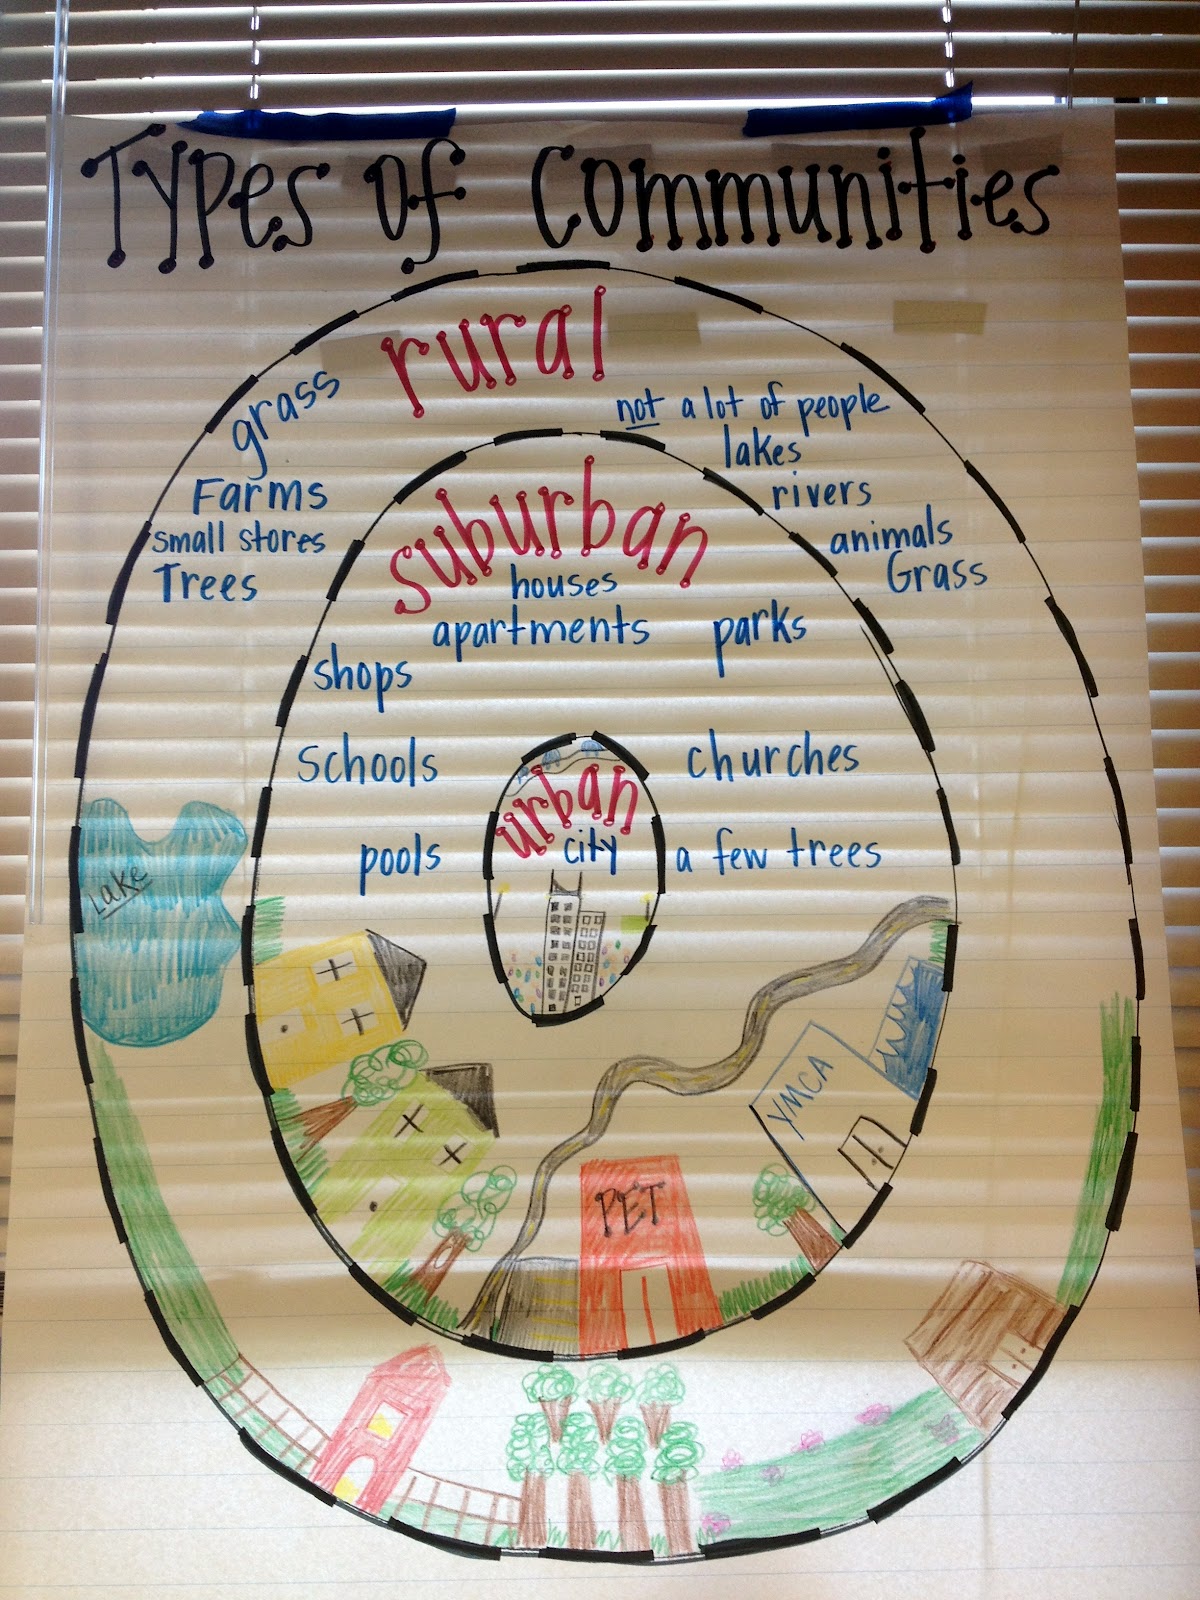 Types of Communities
rural
grass
Farms
small stores
Trees
not a lot of people
lakes
rivers
animals
Grass
suburban
houses
apartments
parks
shops
Schools
churches
pools
a few trees
urban
city
Lake
YMCA
PET